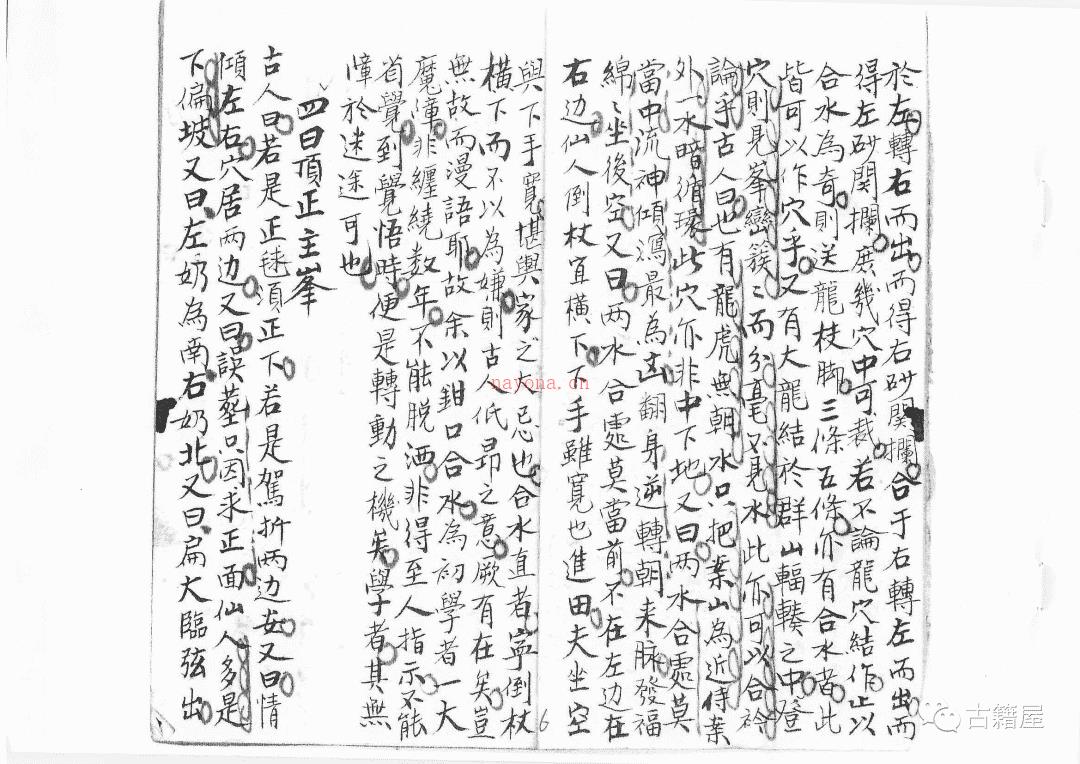 於左轉右而出而得右砂関攔合于右轉左而出而
得左砂関攔庶幾穴中可裁若不論龍穴結作止以
合水為奇則送龍杖脚三條五條亦有合水者此
皆可以作穴乎又有大龍結於群山輻輳之中登
穴則見峯巒簇〻而分毫不見水此亦可以合衿
論乎古人曰也有龍虎無朝水只把案山為近侍案
外一水暗循環此穴亦非中下地又曰两水合處莫
當中流神傾瀉最為凶翻身逆轉朝来脉發福
綿〻坐後空又曰两水合處莫當前不在左边在
右边仙人倒杖宜横下下手雖寬也進田夫坐空
與下手寬堪輿家之大忌也合水直者寧倒杖
横下而不以為嫌則古人低昂之意厥有在矣豈
無故而漫語耶故余以鉗口合水為初學者一大
魔障非纏繞数年不能脱洒非得至人指示不能
省覺到覺悟時便是轉動之機矣學者其無
憧於迷途可也
四曰頂正主峯
古人曰若是正毬須正下若是駕折两边安又曰情
傾左右穴居两边又曰誤葬只因求正面仙人多是
下偏坡又曰左奶為南右奶北又曰扁大臨弦出
6
nayona.cn
古籍屋